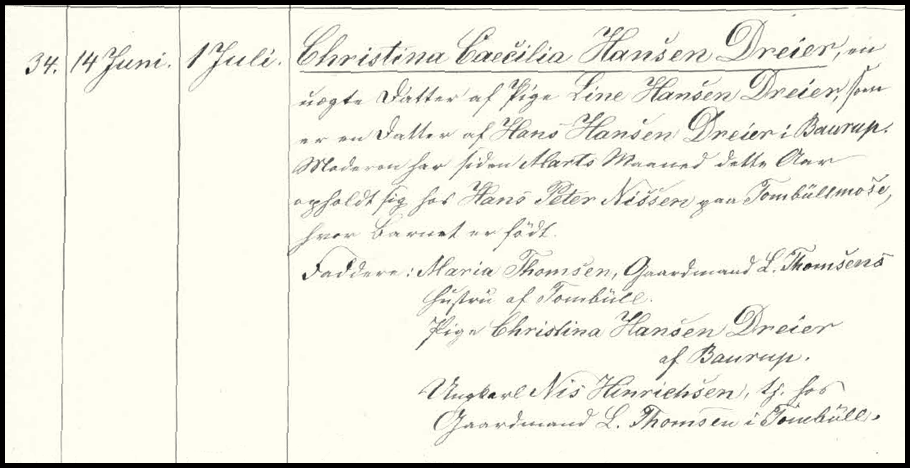 34. 14 Juni. 1 Juli. Christina Caecilia Hansen Dreier, en
uægte Datter af Pige Line Hansen Dreier, som
er en Datter af Hans Hansen Dreier i Baurup.
Moderen har siden Marts Maaned dette Aar
opholdt sig hos Hans Peter Nissen paa Tombüllmose,
hvor Barnet er födt.
Faddere: Maria Thomsen, Gaardmand L. Thomsens
Hustru af Tombüll.
Pige Christina Hansen Dreier
af Baurup.
Ungkarl Nis Hinrichsen, tj. hos
Gaardmand L. Thomsen i Tombüll.